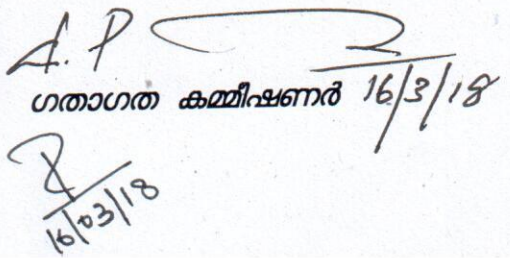 A. P
ഗതാഗത കമ്മീഷണർ 16/3/18
16/03/18